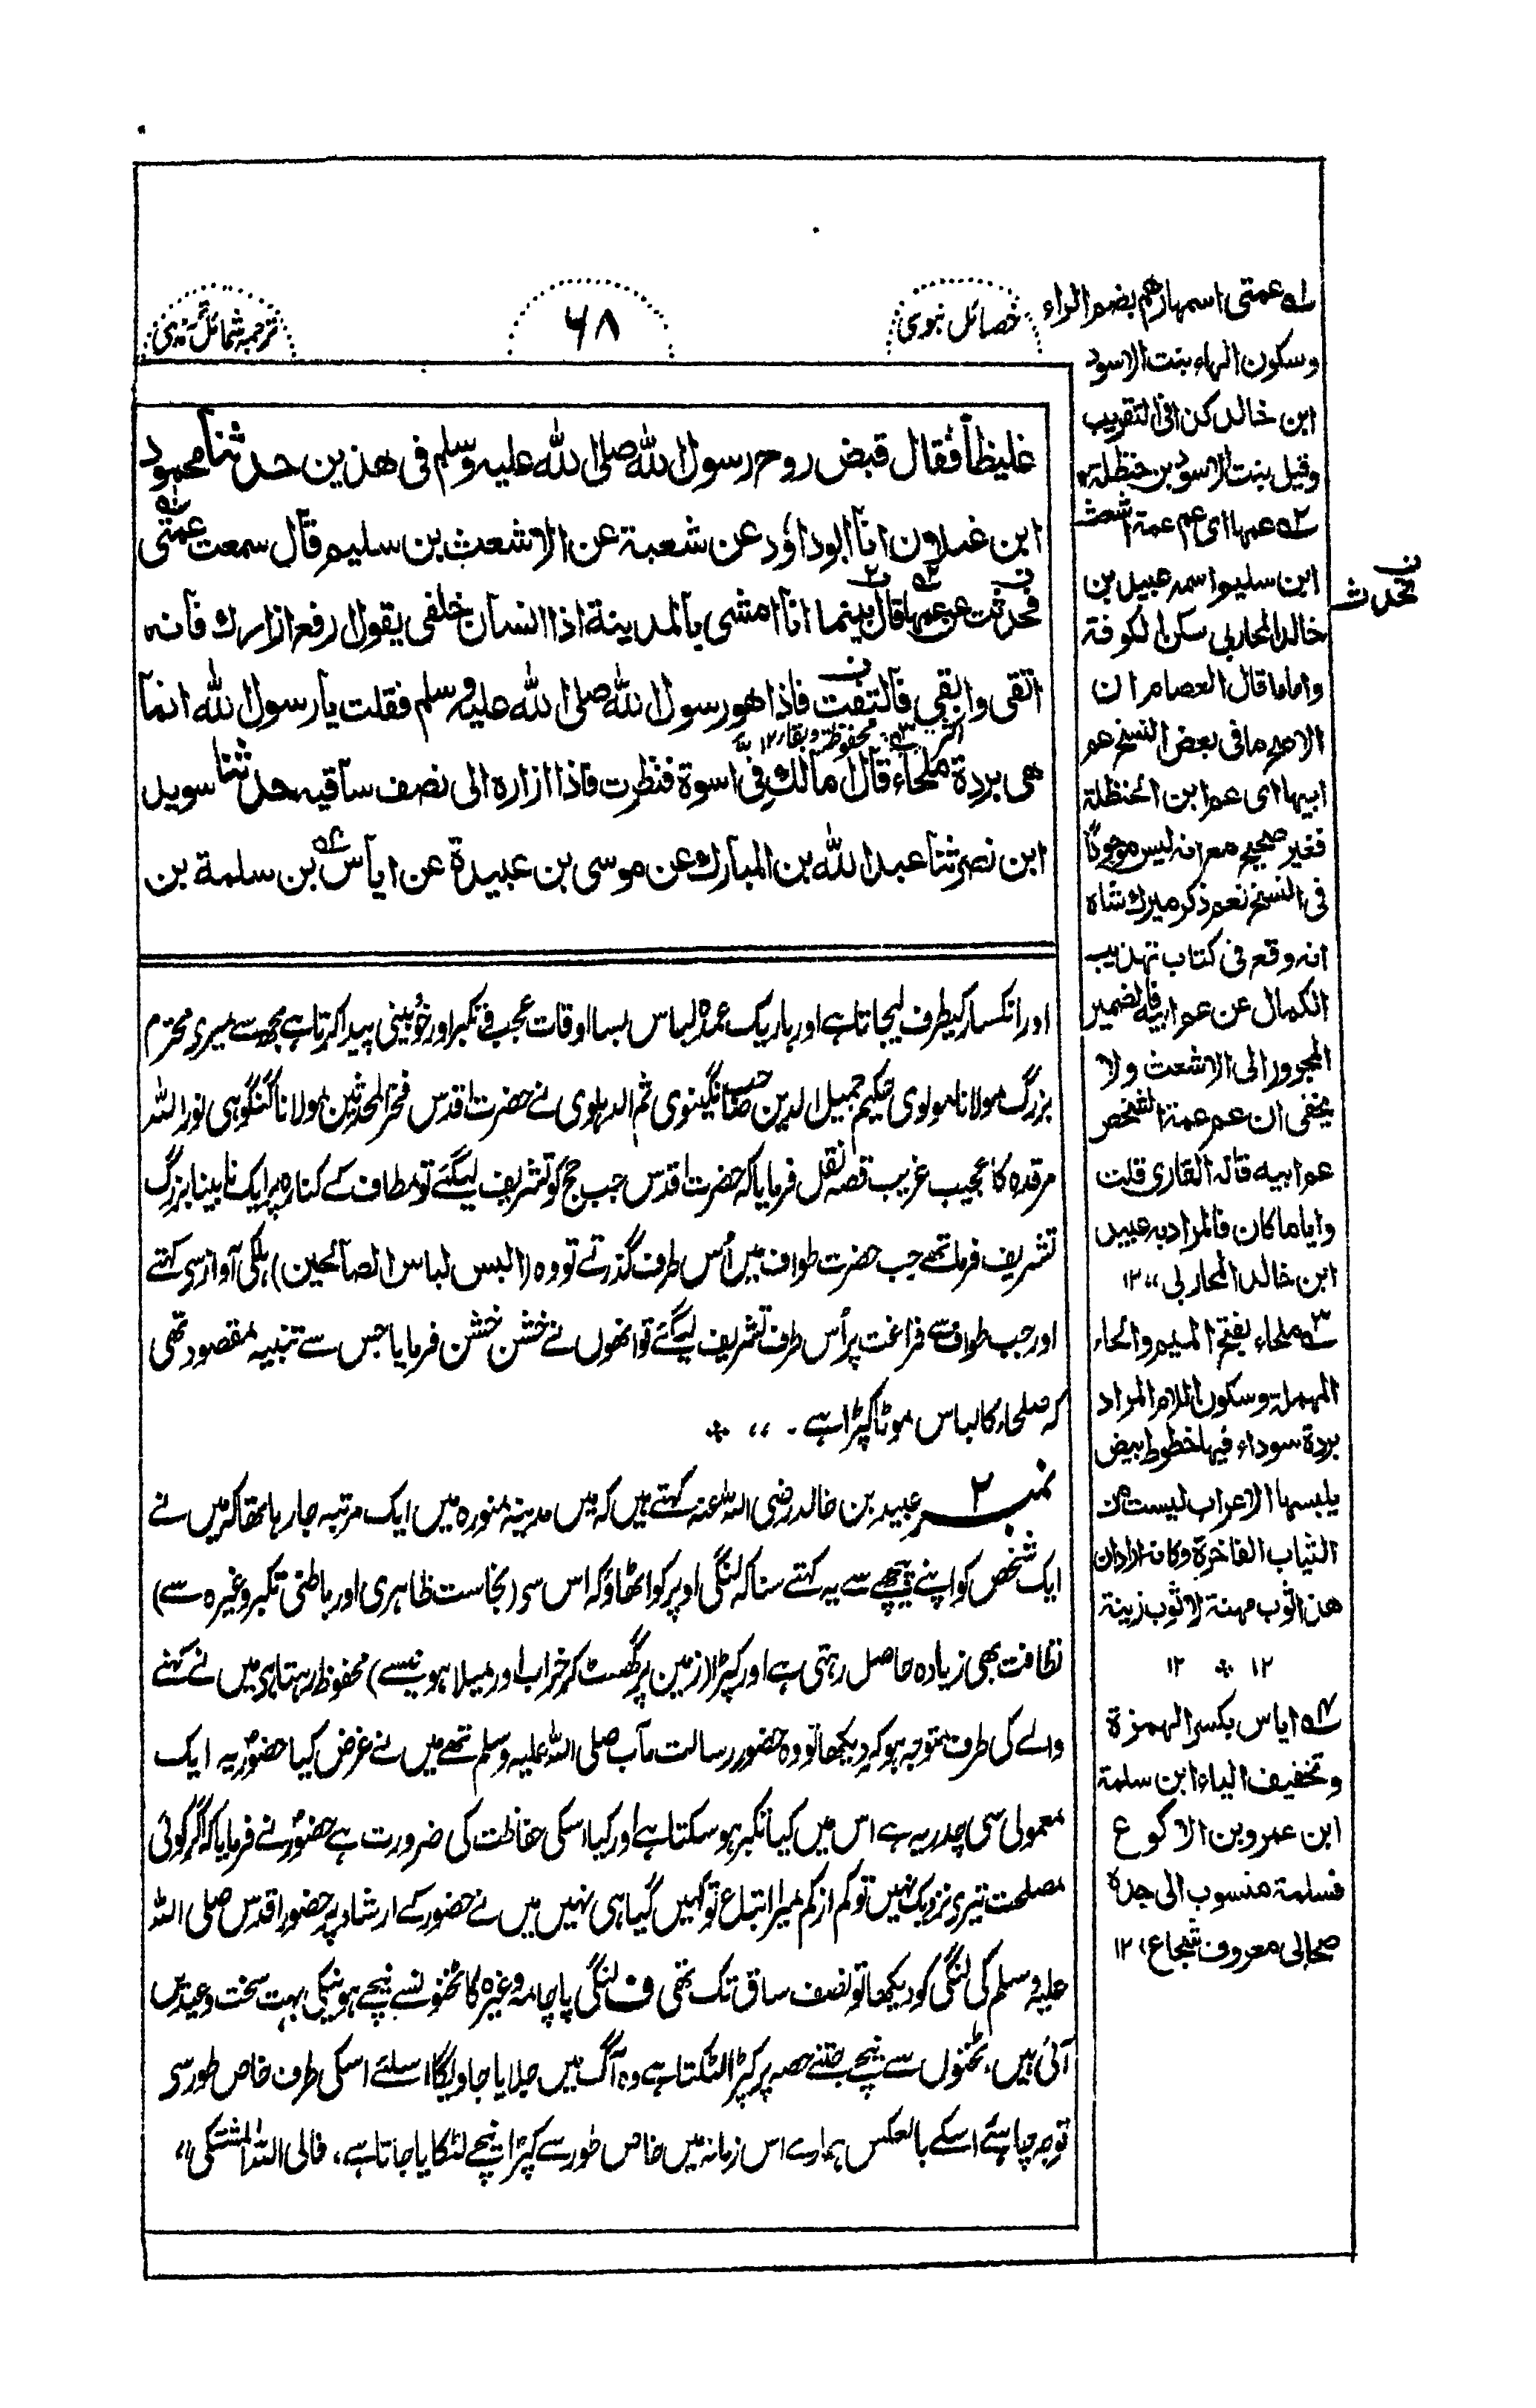 خصائل نبوی
۶۸
ترجمہ شمائل ترمذی
غلیظاً فقال قبض روح رسول الله صلی الله علیه وسلم فی هذین حدثنا محمود
ابن غیلان انا ابو داؤد عن شعبة عن الاشعث بن سلیم قال سمعت عمتی
فحدثت عن عمها قال بینما انا امشی بالمدینة اذا انسان خلفی یقول رفع ازارك فانه
اتقی وابقی فالتفت فاذا هو رسول الله صلی الله علیه وسلم فقلت یا رسول الله انما
هی بردة ملحاء قال مالك فی اسوة فنظرت فاذا ازاره الی نصف ساقیه حدثنا سوید
ابن نصر ثنا عبد الله بن المبارك عن موسی بن عبیدة عن ایاس بن سلمة بن
اور انکسار کیطرف لیجاتا ہے اور باریک عمدہ لباس بسا اوقات عجب و تکبر اور خودبینی پیدا کرتا ہے مجھ سے میری محترم
بزرگ مولانا مولوی حکیم جمیل الدین صاحب نگینوی ثم الدہلوی نے حضرت اقدس فخر المحدثین مولانا گنگوہی نور اللہ
مرقدہ کا عجیب غریب قصہ نقل فرمایا کہ حضرت اقدس جب حج کو تشریف لیگئے تو مطاف کے کنارہ پر ایک نابینا بزرگ
تشریف فرما تھے جب حضرت طواف میں اُس طرف گذرتے تو وہ (البس لباس الصالحین) ہلکی آواز سی کہتے
اور جب طواف سے فراغت پر اُس طرف تشریف لیگئے تو انھوں نے خشن خشن فرمایا جس سے تنبیہ مقصود تھی
کہ صلحاء کا لباس موٹا کپڑا ہے ۔ ،،
نمبر ۲ عبید بن خالد رضی اللہ عنہ کہتے ہیں کہ میں مدینہ منورہ میں ایک مرتبہ جا رہا تھا کہ میں نے
ایک شخص کو اپنے پیچھے سے یہ کہتے سنا کہ لنگی اوپر کو اٹھاؤ کہ اس سی (نجاست ظاہری اور باطنی تکبر وغیرہ سے)
نظافت بھی زیادہ حاصل رہتی ہے اور کپڑا (زمین پر گھسٹ کر خراب اور میلا ہونیسے) محفوظ رہتا ہی میں نے کہنے
والے کی طرف متوجہ ہو کر دیکھا تو وہ حضور رسالت مآب صلی اللہ علیہ وسلم تھے میں نے عرض کیا حضور یہ ایک
معمولی سی چدریہ ہے اس میں کیا تکبر ہو سکتا ہے اور کیا اسکی حفاظت کی ضرورت ہے حضور نے فرمایا کہ اگر کوئی
مصلحت تیری نزدیک نہیں تو کم از کم میرا اتباع تو کہیں گیا ہی نہیں میں نے حضور کے ارشاد پر حضور اقدس صلی اللہ
علیہ وسلم کی لنگی کو دیکھا تو نصف ساق تک تھی ف لنگی پاجامہ وغیرہ کا ٹخنونسے نیچے ہونیکی بہت سخت وعیدیں
آئی ہیں، ٹخنوں سے نیچے جتنے حصہ پر کپڑا لٹکتا ہے وہ آگ میں جلایا جاویگا اسلئے اسکی طرف خاص طور سی
توجہ چاہئے اسکے بالعکس ہمارے اس زمانہ میں خاص طور سے کپڑا نیچے لٹکایا جاتا ہے، فالی اللہ المشتکی ،،
۱ عمتی اسمها رهم بضم الراء
وسكون الهاء بنت الاسود
ابن خالد كذا فی التقریب
وقیل بنت الاسود بن حنظلة
۲ عمها ای عم عمة اشعث
ابن سلیم اسمه عبید بن
خالد المحاربی سكن الكوفة
واما ما قال العصام ان
الاصح ما فی بعض النسخ عم
ابیها ای عم ابن الحنظلة
فغیر صحیح مع انه لیس موجودًا
فی النسخ نعم ذكر میرك شاه
انه وقع فی كتاب تهذیب
الكمال عن عم ابیه فالضمیر
المجرور الی الاشعث ولا
یخفی ان عم عمة الشخص
عم ابیه قاله القاری قلت
وایاما كان فالمراد به عبید
ابن خالد المحاربی ،، ۱۲
۳ ملحاء بفتح المیم والحاء
المهملة وسكون اللام المراد
بردة سوداء فیها خطوط بیض
یلبسها الاعراب لیست من
الثیاب الفاخرة وكانه اراد ان
هذا ثوب مهنة لا ثوب زینة
۱۲ ۱۲
۴ ایاس بكسر الهمزة
وتخفیف الیاء ابن سلمة
ابن عمرو بن الاكوع
فسلمة منسوب الی جده
صحابی معروف شجاع، ۱۲